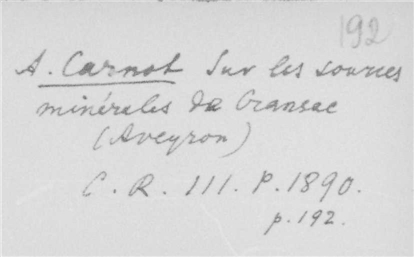 192
A. Carnot Sur les sources
minérales de Cransac
(Aveyron)
C. R. 111. P. 1890.
p. 192.